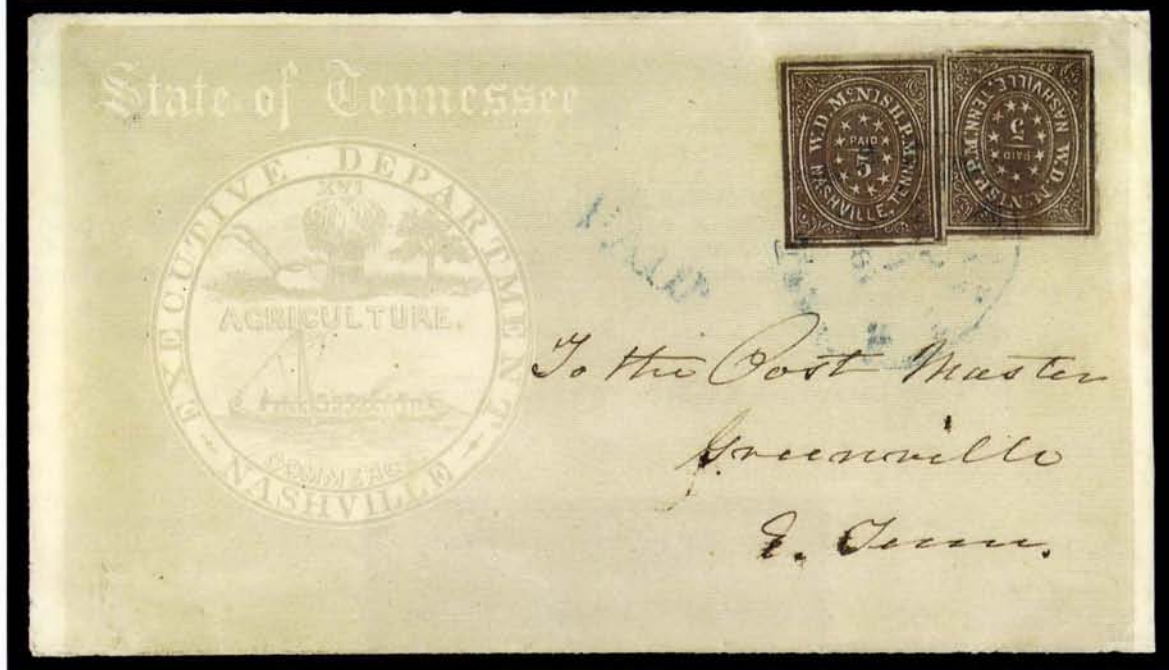 State of Tennessee
EXECUTIVE DEPARTMENT
XVI
AGRICULTURE.
COMMERCE
NASHVILLE
W.D. McNISH, P.M.
PAID
5
NASHVILLE, TENN.
W.D. McNISH, P.M.
PAID
5
NASHVILLE, TENN.
PAID
To the Post Master
Greenville
E. Tenn.